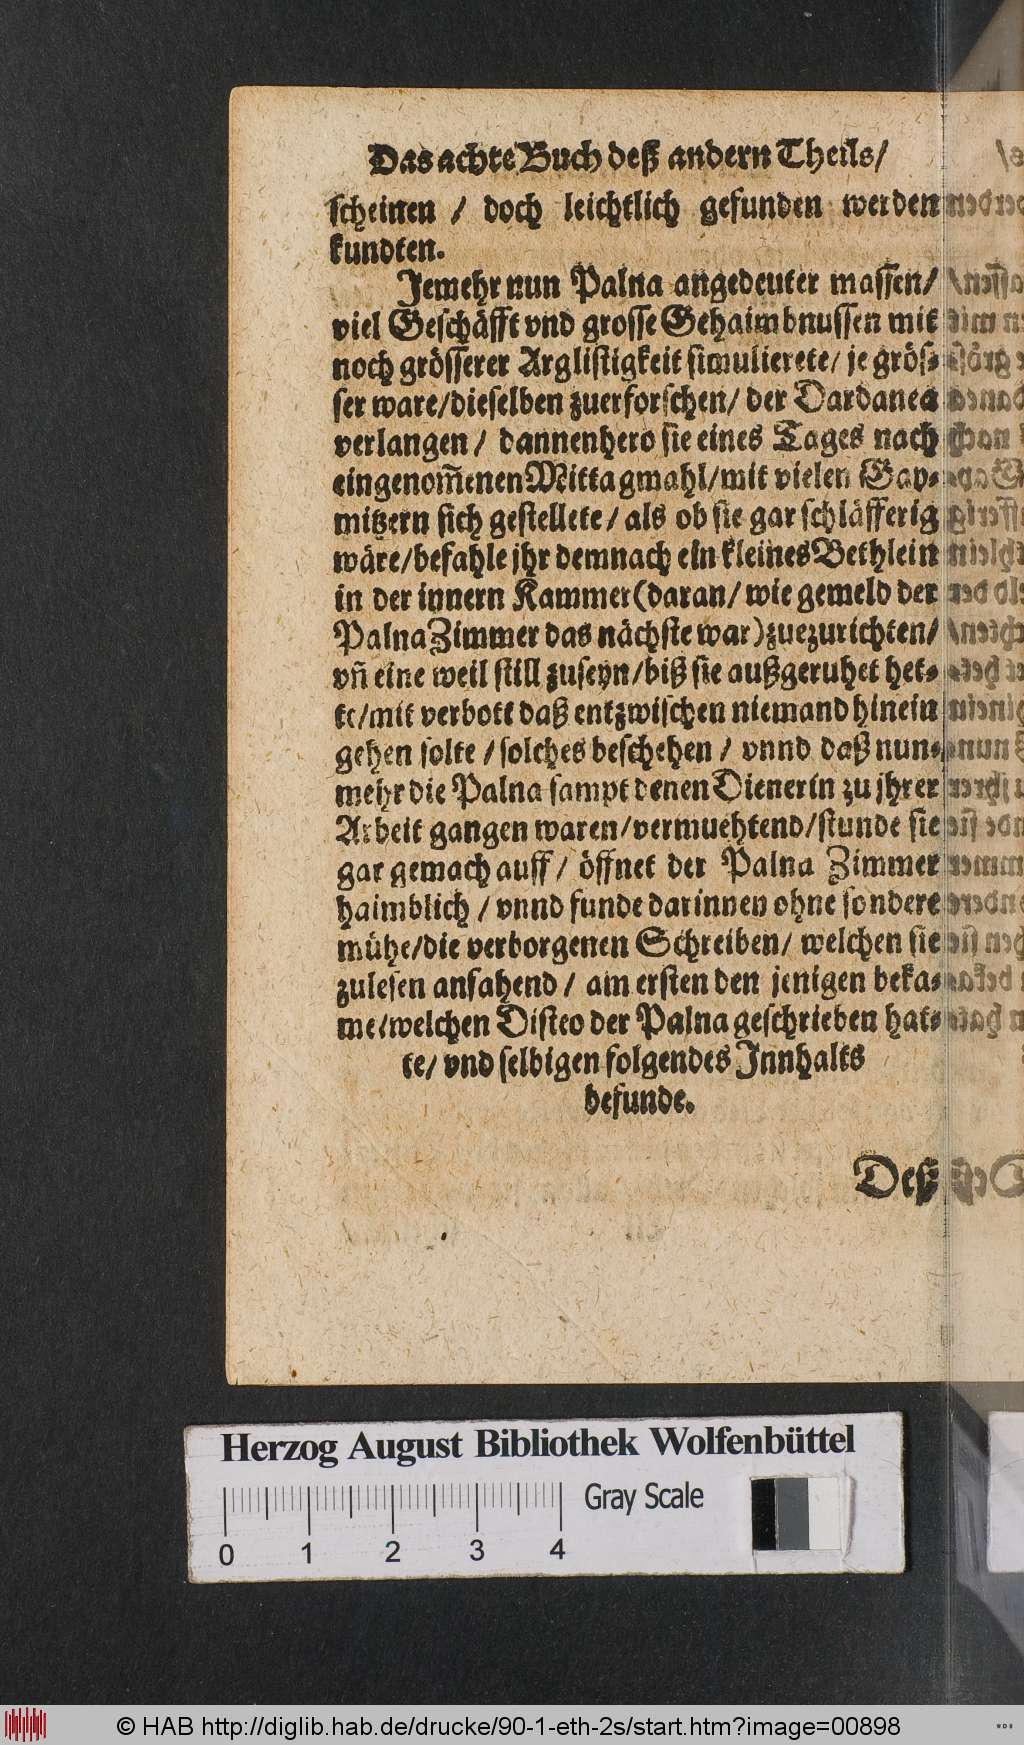 Das achte Buch deß andern Theils/
scheinen / doch leichtlich gefunden werden
kundten.
Jemehr nun Palna angedeuter massen/
viel Geschäfft vnd grosse Gehaimbnussen mit
noch grösserer Arglistigkeit simulierete/ je grös-
ser ware/dieselben zuerforschen/ der Dardanea
verlangen / dannenhero sie eines Tages nach
eingenom̃enen Mittagmahl/mit vielen Gay-
mitzern sich gestellete/ als ob sie gar schläfferig
wäre/befahle jhr demnach ein kleines Bethlein
in der innern Kammer (daran/ wie gemeld der
Palna Zimmer das nächste war) zuezurichten/
vn̄ eine weil still zuseyn/biß sie außgeruhet het-
te/mit verbott daß entzwischen niemand hinein
gehen solte / solches beschehen / vnnd daß nun-
mehr die Palna sampt denen Dienerin zu jhrer
Arbeit gangen waren/vermuehtend/stunde sie
gar gemach auff / öffnet der Palna Zimmer
haimblich / vnnd funde darinnen ohne sondere
mühe/die verborgenen Schreiben/ welchen sie
zulesen anfahend / am ersten den jenigen beka-
me/welchen Disteo der Palna geschrieben hat-
te/ vnd selbigen folgendes Innhalts
befunde.
Deß
Herzog August Bibliothek Wolfenbüttel
Gray Scale
0 1 2 3 4
© HAB http://diglib.hab.de/drucke/90-1-eth-2s/start.htm?image=00898